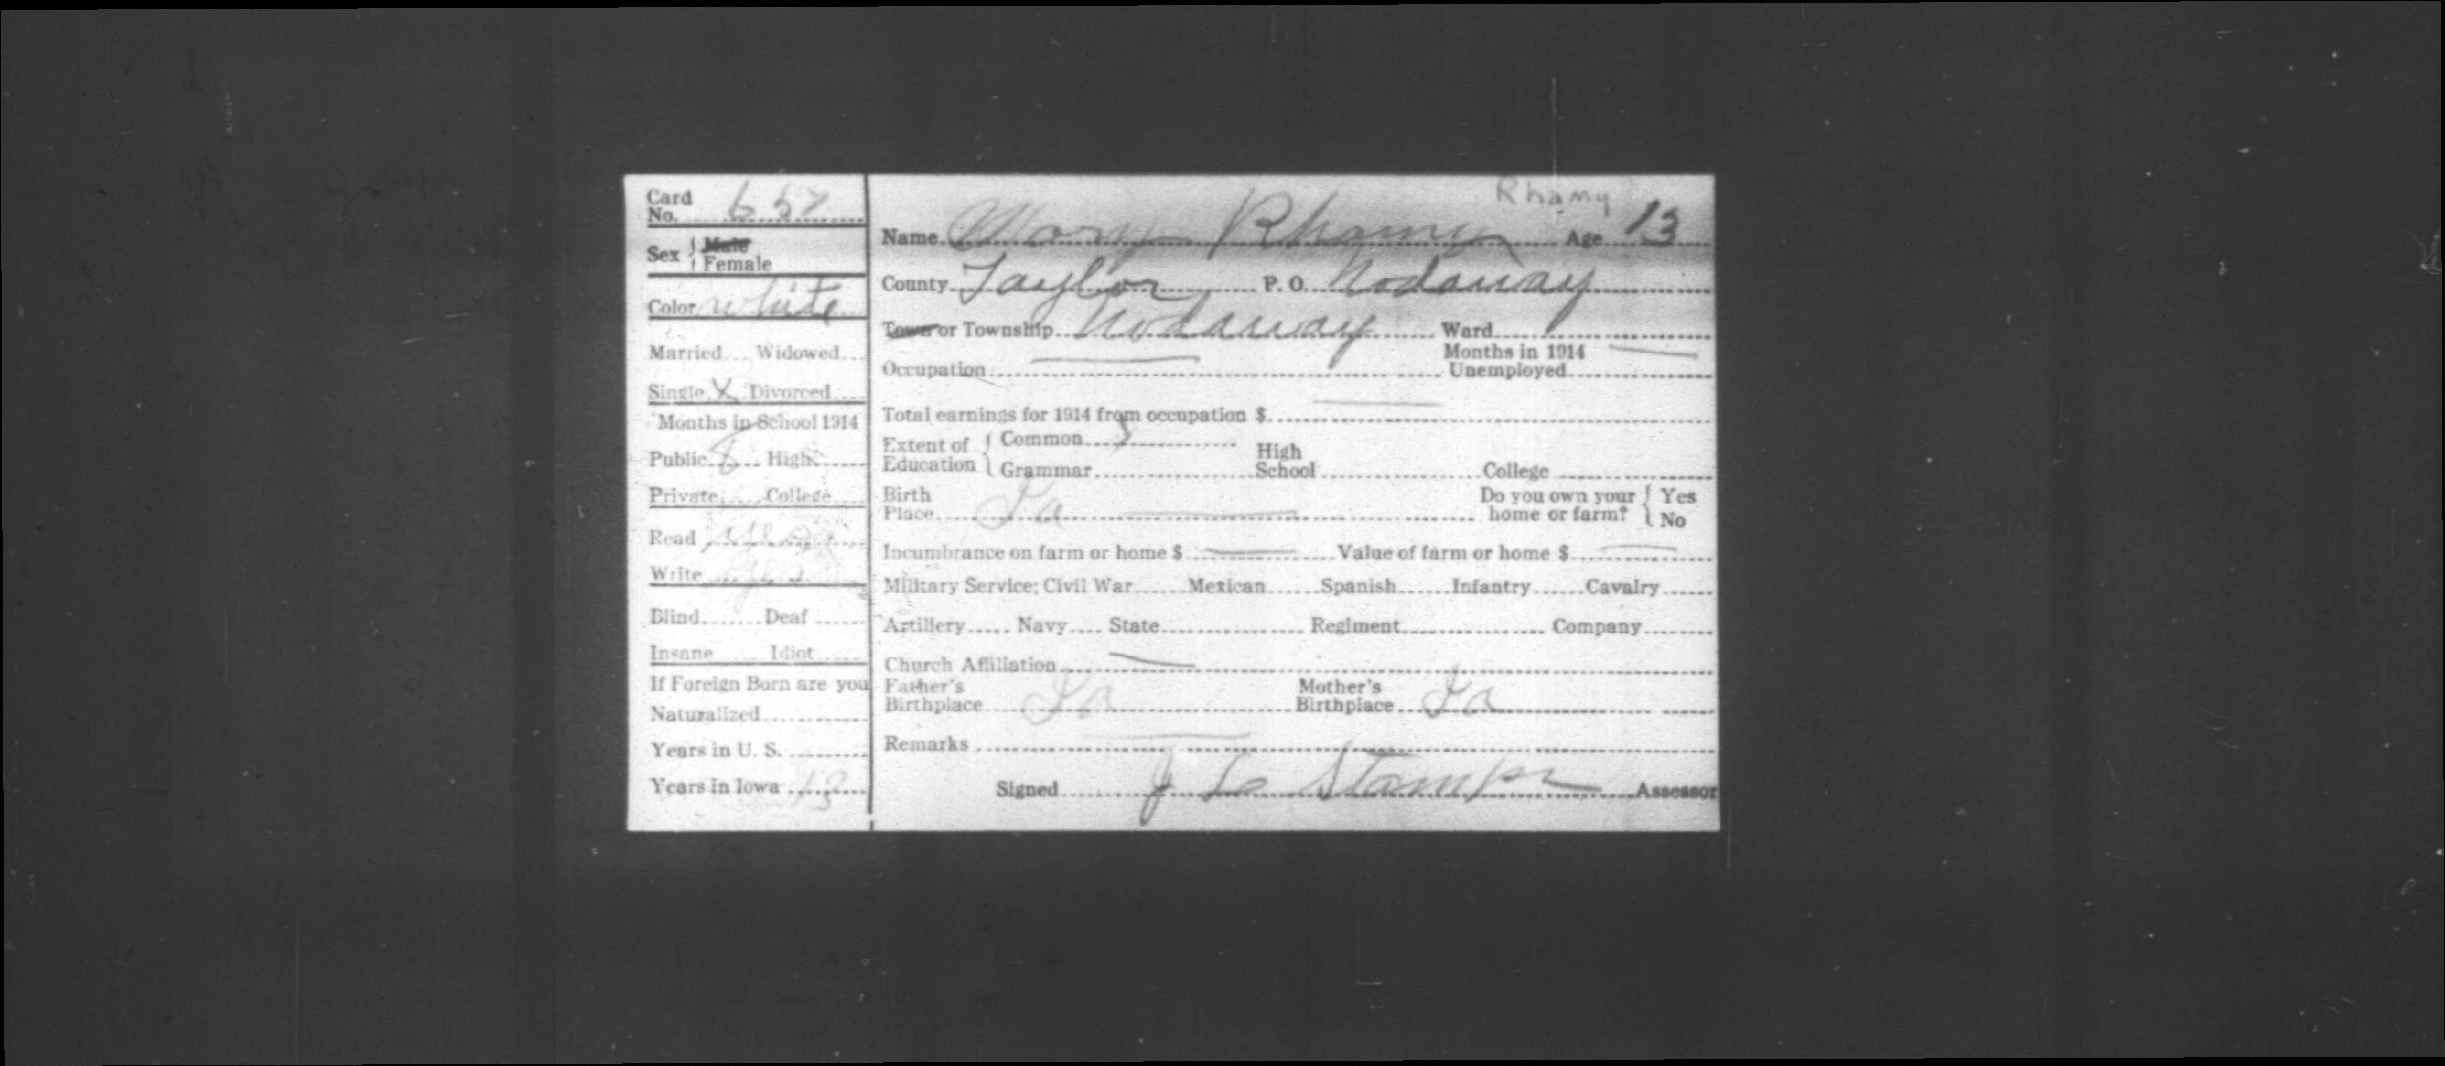 Card No. 657
Sex { Male
Female
Color white
Married Widowed
Single X Divorced
Months in School 1914
Public 8 High
Private College
Read yes
Write yes
Blind Deaf
Insane Idiot
If Foreign Born are you
Naturalized
Years in U. S.
Years in Iowa 13
Rhamy
Name Mary Rhamy Age 13
County Taylor P. O. Nodaway
Town or Township Nodaway Ward
Occupation — Months in 1914 Unemployed —
Total earnings for 1914 from occupation $ —
Extent of Education { Common 8
Grammar High School College
Birth Place Ia — Do you own your home or farm? { Yes
No
Incumbrance on farm or home $ — Value of farm or home $ —
Military Service: Civil War Mexican Spanish Infantry Cavalry
Artillery Navy State Regiment Company
Church Affiliation —
Father's Birthplace Ia Mother's Birthplace Ia
Remarks —
Signed J Assessor